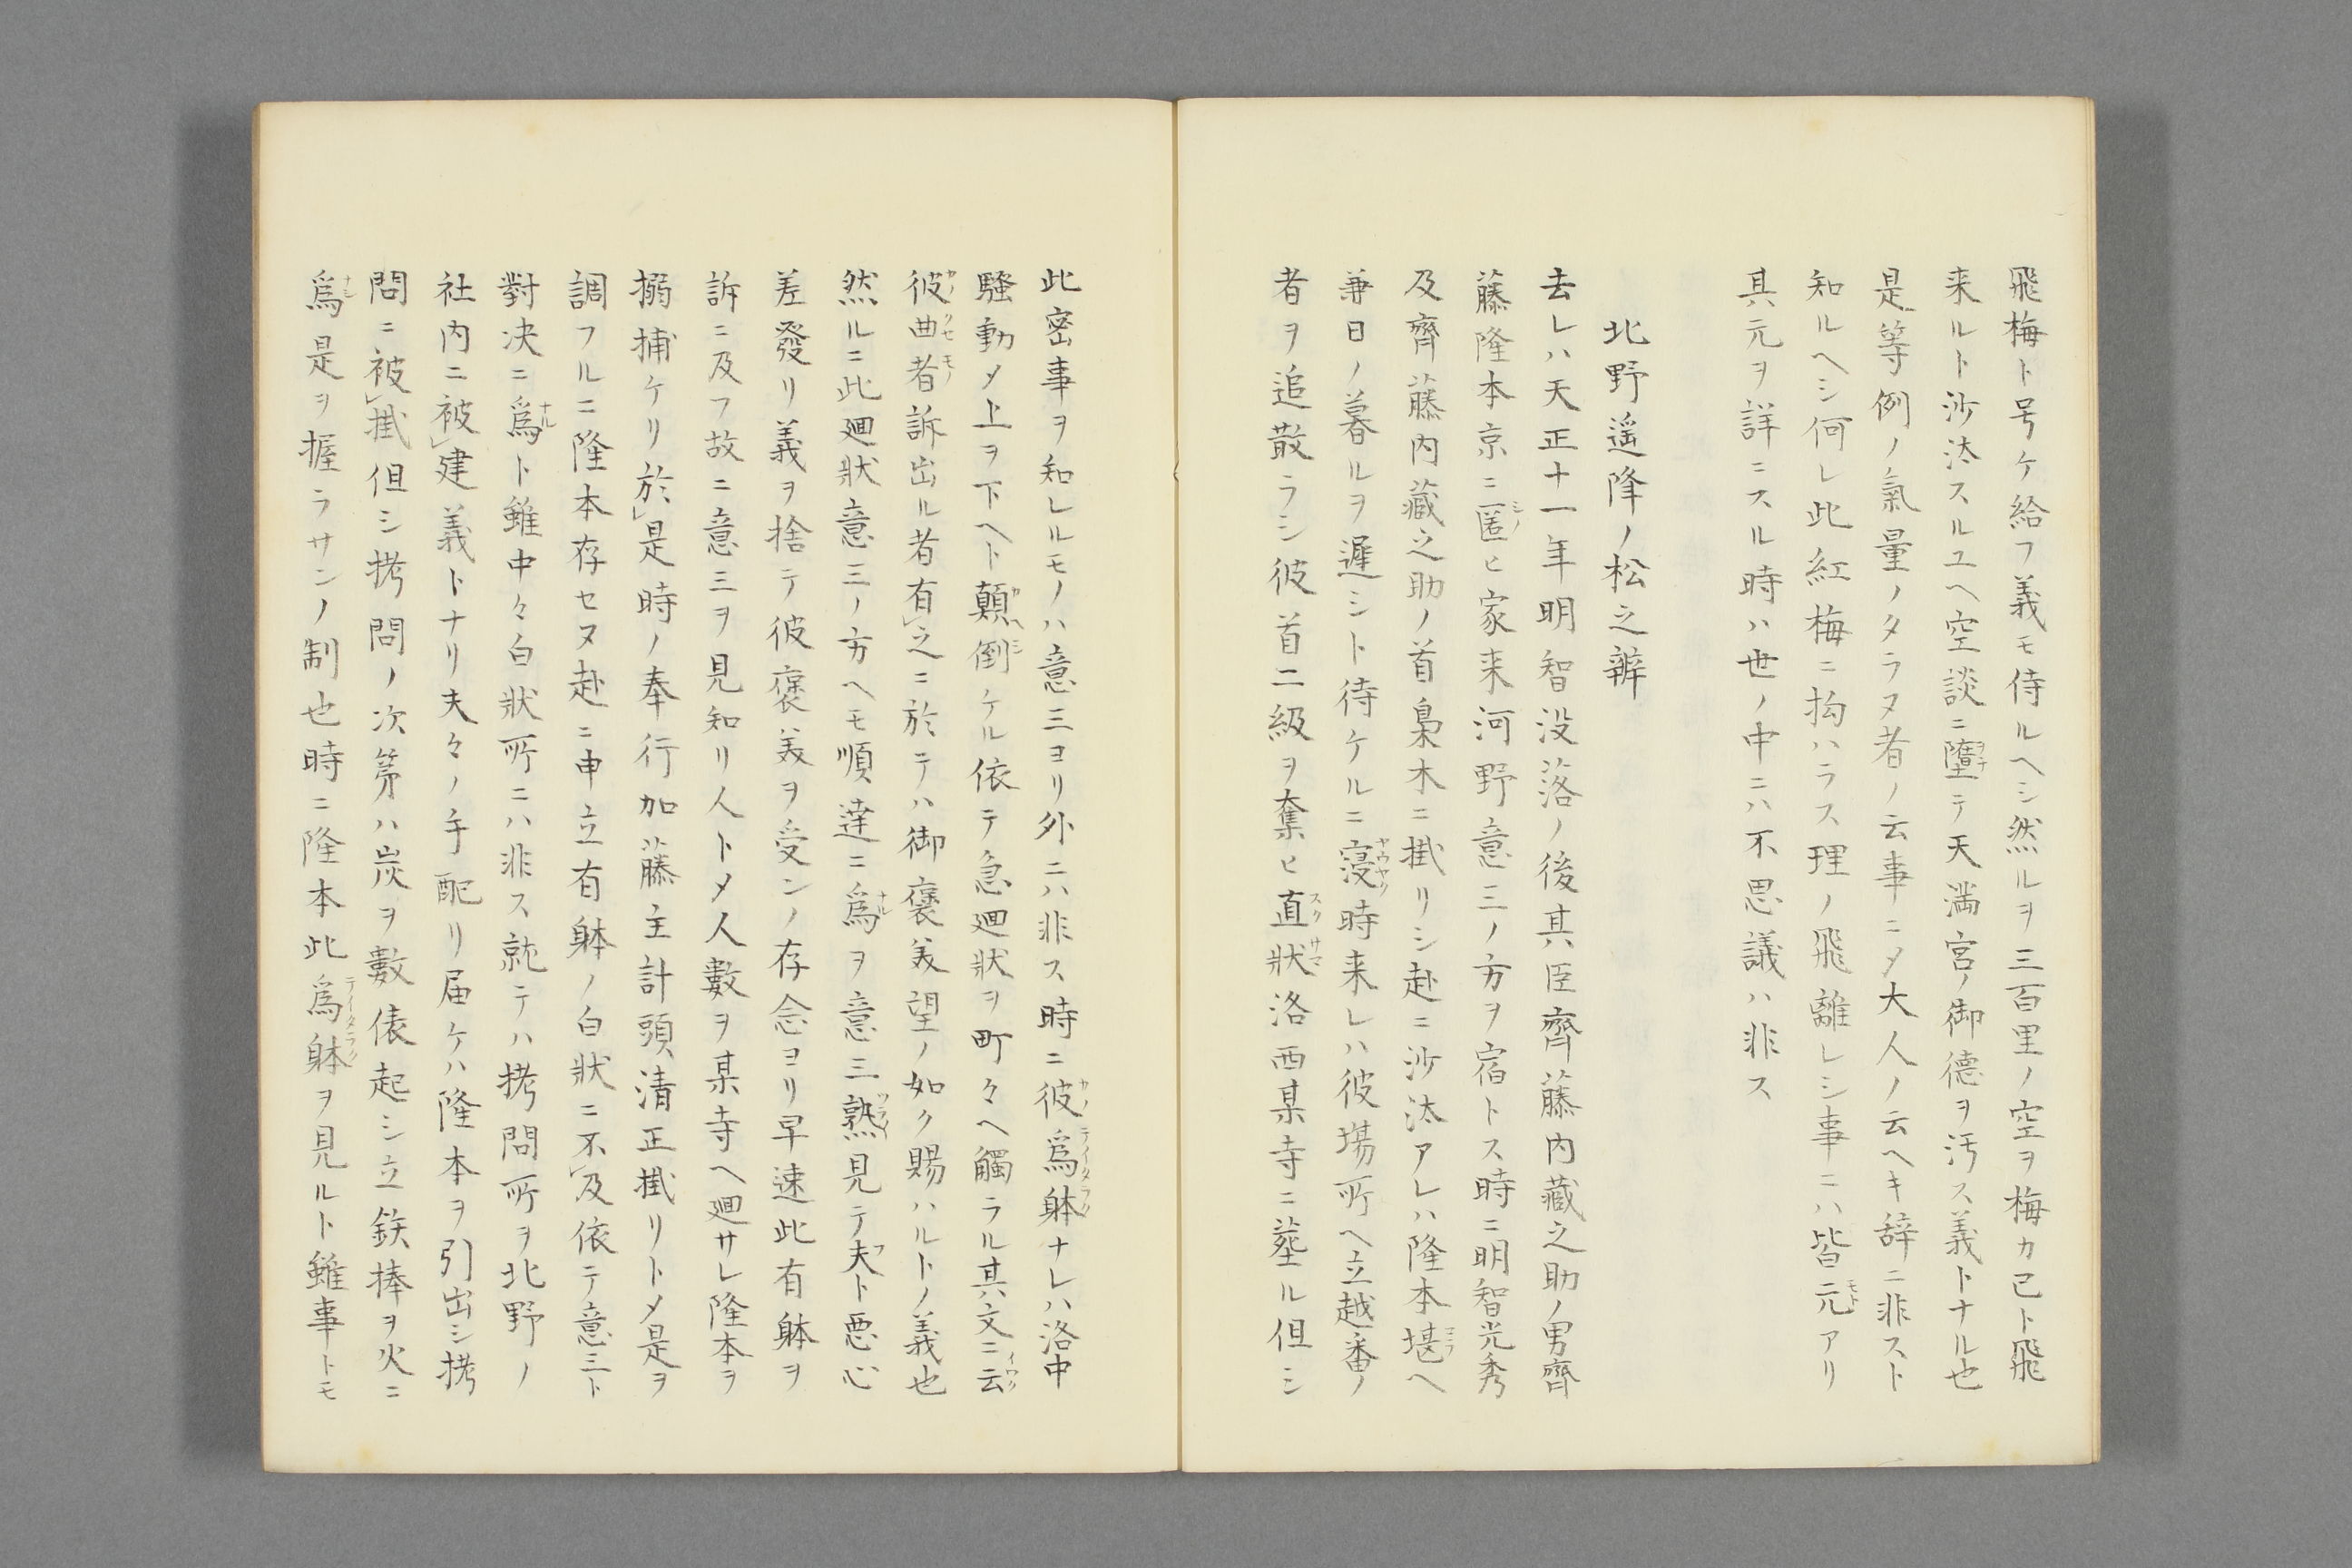 飛梅ト号ケ給フ義モ侍ルヘシ然ルヲ三百里ノ空ヲ梅カ己ト飛
来ルト沙汰スルユヘ空談ニ堕テ天満宮ノ御德ヲ汚ス義トナル也
是等例ノ氣量ノタラヌ者ノ云事ニメ大人ノ云ヘキ辞ニ非スト
知ルヘシ何レ此紅梅ニ拘ハラス理ノ飛離レシ事ニハ皆元モトアリ
其元ヲ詳ニスル時ハ世ノ中ニハ不思議ハ非ス
北野遥降ノ松之辨
去レハ天正十一年明智没落ノ後其臣齊藤内藏之助ノ男齊
藤隆本京ニ匿シノヒ家来河野意三ノ方ヲ宿トス時ニ明智光秀
及齊藤内藏之助ノ首梟木ニ掛リシ赴ニ沙汰アレハ隆本堪ヘ
兼日ノ暮ルヲ遲シト待ケルニ寖ヤウヤク時来レハ彼場所ヘ立越番ノ
者ヲ追散ラシ彼首二級ヲ奪ヒ直スク狀サマ洛西某寺ニ葬ル但シ
此密事ヲ知レルモノハ意三ヨリ外ニハ非ス時ニ彼カノ爲躰テイタラクナレハ洛中
騷動メ上ヲ下ヘト顛倒ケル依テ急廻狀ヲ町々ヘ觸ラル其文ニ云イワク
彼カノ曲クセ者モノ訴出ル者有レ之ニ於テハ御褒美望ノ如ク賜ハルトノ義也
然ルニ此廻狀意三ノ方ヘモ順達ニ爲ナルヲ意三熟見テ夫フト悪心
差發リ義ヲ捨テ彼褒美ヲ受ンノ存念ヨリ早速此有躰ヲ
訴ニ及フ故ニ意三ヲ見知リ人トメ人數ヲ某寺ヘ廻サレ隆本ヲ
搦捕ケリ於レ是時ノ奉行加藤主計頭清正掛リトメ是ヲ
調フルニ隆本存セヌ赴ニ申立有躰ノ白狀ニ不レ及依テ意三ト
對决ニ爲ナルト雖中々白狀所ニハ非ス就テハ拷問所ヲ北野ノ
社内ニ被レ建義トナリ夫々ノ手配リ届ケハ隆本ヲ引出シ拷
問ニ被レ掛但シ拷問ノ次第ハ炭ヲ數俵起シ立鉄捧ヲ火ニ
爲ナシ是ヲ握ラサンノ制也時ニ隆本此爲躰テイタラクヲ見ルト雖事トモ